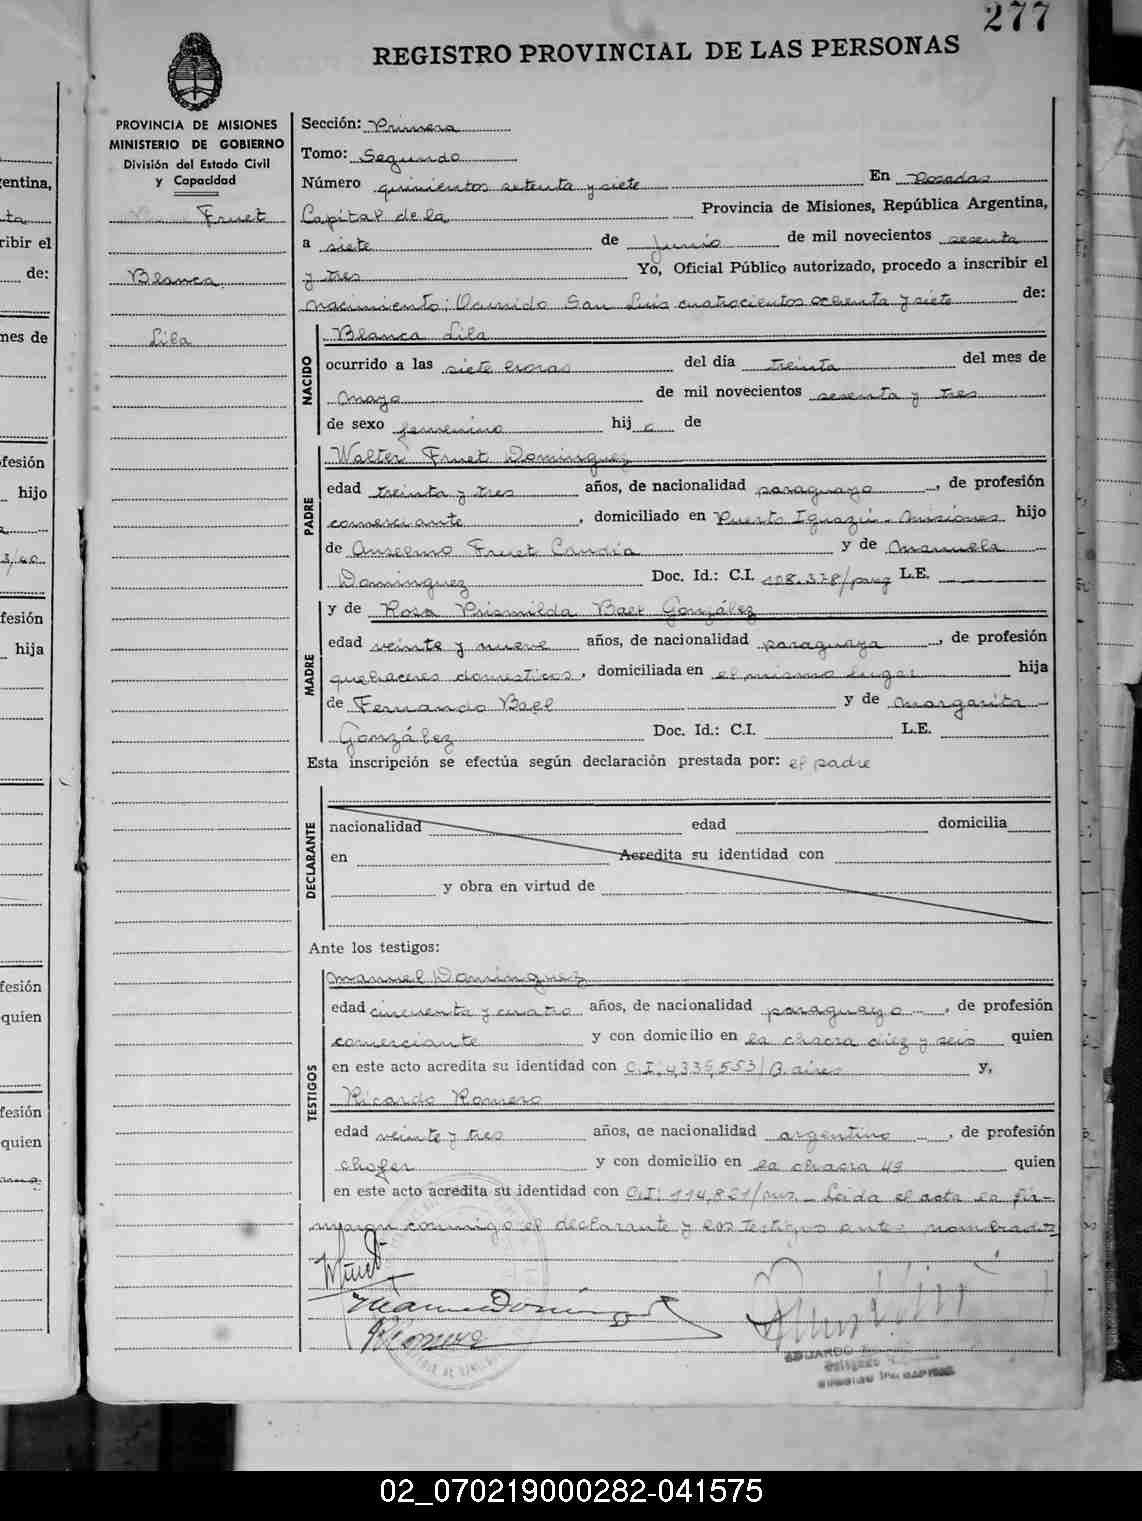 277
REGISTRO PROVINCIAL DE LAS PERSONAS
PROVINCIA DE MISIONES
MINISTERIO DE GOBIERNO
División del Estado Civil
y Capacidad
Fruet
Blanca
Lila
Sección: Primera
Tomo: Segundo
Número quinientos setenta y siete En Posadas
Capital de la Provincia de Misiones, República Argentina,
a siete de Junio de mil novecientos sesenta
y tres Yo, Oficial Público autorizado, procedo a inscribir el
nacimiento: Ocurrido San Luis cuatrocientos ochenta y siete de:
NACIDO
Blanca Lila
ocurrido a las siete horas del día treinta del mes de
Mayo de mil novecientos sesenta y tres
de sexo femenino hij a de
PADRE
Walter Fruet Dominguez
edad treinta y tres años, de nacionalidad paraguayo, de profesión
comerciante, domiciliado en Puerto Iguazú - Misiones hijo
de Anselmo Fruet Candia y de Manuela
Dominguez Doc. Id.: C.I. 108.378/parg L.E.
MADRE
y de Rosa Prismilda Baez González
edad veinte y nueve años, de nacionalidad paraguaya, de profesión
quehaceres domesticos, domiciliada en el mismo lugar hija
de Fernando Baez y de Margarita
González Doc. Id.: C.I. L.E.
Esta inscripción se efectúa según declaración prestada por: el padre
DECLARANTE
nacionalidad edad domicilia
en Acredita su identidad con
y obra en virtud de
Ante los testigos:
TESTIGOS
Manuel Dominguez
edad cincuenta y cuatro años, de nacionalidad paraguayo, de profesión
comerciante y con domicilio en la chacra diez y seis quien
en este acto acredita su identidad con C.I: 4,335,553/B.aires y,
Ricardo Romero
edad veinte y tres años, de nacionalidad argentino, de profesión
chofer y con domicilio en la chacra 49 quien
en este acto acredita su identidad con C.I: 114,821/mis - Leida el acta la fir-
maron conmigo el declarante y los testigos antes nombrados
WFruet
Manuel Dominguez
RRomero
EDUARDO
Delegado
entina,
ta
ribir el
de:
mes de
fesión
hijo
3/40
fesión
hija
fesión
quien
fesión
quien
02_070219000282-041575